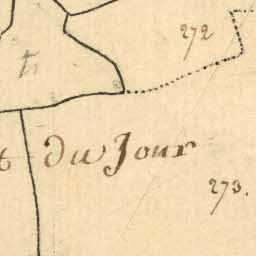 272
du Jour
273.